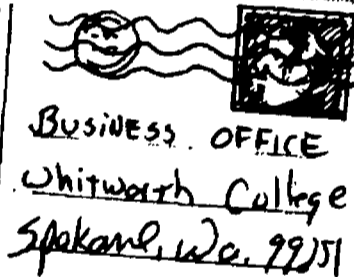 BUSINESS OFFICE
Whitworth College
Spokane, Wa. 99251